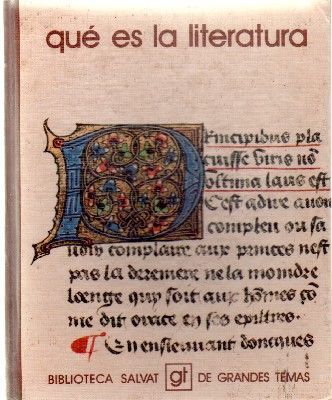 qué es la literatura
Principibus pla
cuisse viris nõ
ultima laus est
Cest adire auoir
compleu ou sa
uoir complaire aux princes nest
pas la derreniere ne la moindre
loenge quy soit aux hõmes cõ
me dit orace en ses epistres.
¶ En ensieuant doncques
BIBLIOTECA SALVAT gt DE GRANDES TEMAS